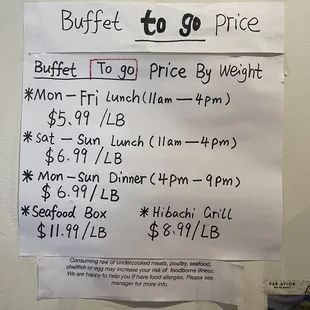 Buffet to go Price
Buffet To go Price By Weight
*Mon - Fri Lunch (11am - 4pm)
$5.99 /LB
*Sat - Sun Lunch (11am - 4pm)
$6.99 /LB
*Mon - Sun Dinner (4pm - 9pm)
$6.99 /LB
*Seafood Box *Hibachi Grill
$11.99 /LB $8.99 /LB
Consuming raw or undercooked meats, poultry, seafood,
shellfish or egg may increase your risk of foodborne illness.
We are happy to help you if have food allergies. Please see
manager for more info.
PAR AVION